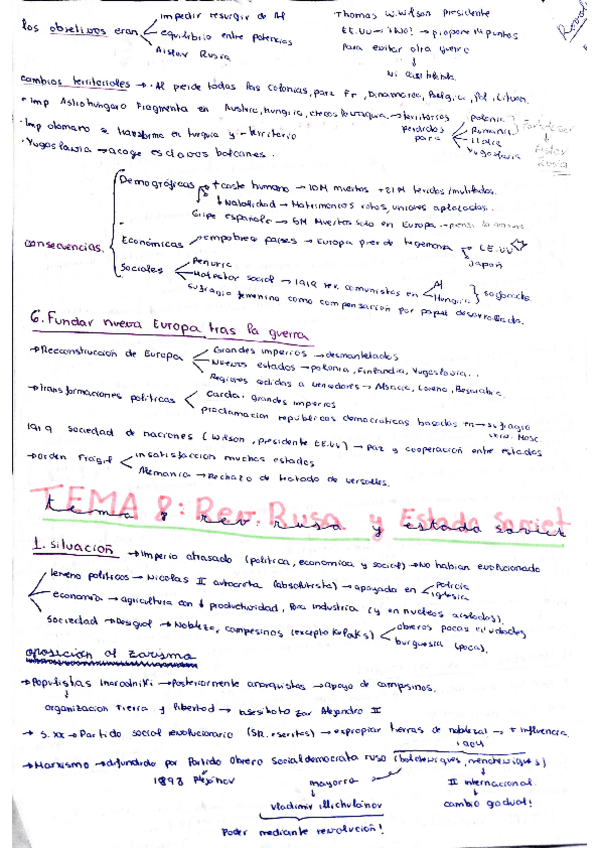 impedir resurgir de Al
Los objetivos eran equilibrio entre potencias
Aislar Rusia
Thomas W. Wilson presidente
EE.UU → propone 14 puntos
para evitar otra guerra
cambios territoriales → Al pierde todas las colonias, para Fr, Dinamarca, Belgica, Pol, Lituan.
Imp Astrohungaro fragmenta en Austria, hungria, → territorios perdidos para
Polonia
Rumania
Italia
Yugoslavia
Fortalecer
Aislar
Rusia
Imp otomano se transforma en turquia y - territorio
Yugoslavia → acoge eslavos balcanes.
consecuencias.
Demográficas + coste humano → 10M muertos + 21M heridos/mutilados.
↓ Natalidad → Matrimonios rotos, uniones aplazadas.
Gripe española → 6M Muertos solo en Europa
Económicas → empobrece países → Europa pierde hegemonia EE.UU
Japón
Sociales Penuria
Malestar social → 1919 rev. comunistas en Al
Hungria } sofocada
Sufragio femenino como compensación por papel desarrollado.
6. Fundar nueva Europa tras la guerra
→ Reconstrucción de Europa Grandes imperios → desmantelados
Nuevos estados → polonia, Finlandia, Yugoslavia...
Regiones cedidas a vencedores → Alsacia, Lorena, Besarabia.
→ transformaciones politicas caida grandes imperios
proclamacion republicas democraticas basadas en → sufragio
univ. Masc
1919 sociedad de naciones (Wilson, presidente EE.UU) → paz y cooperación entre estados
→ orden Fragil insatisfaccion muchos estados
Alemania → Rechazo de tratado de versalles.
TEMA 8: Rev. Rusa y Estado soviet
tema 8 rev rusa y estado soviet
1. situacion → Imperio atrasado (politica, economica y social) → No habian evolucionado
terreno politicos → Nicolas II autocrata (absolutista) → apoyado en policia
iglesia
economia → agricultura con ↓ productividad, Poca industria (y en nucleos aislados).
Sociedad → Desigual → Nobleza, campesinos (excepto Kulaks) obreros pocas ciudades
burguesia (poca).
oposición al zarismo
→ Populistas (narodniki → Posteriormente anarquistas → apoyo de campesinos.
organizacion tierra y libertad → asesinato zar Alejandro II
→ S. XX → Partido social revolucionario (SR. eseritas) → expropiar tierras de nobleza → + influencia.
1904
→ Marxismo → difundido por Partido Obrero Socialdemocrata ruso (bolcheviques, mencheviques)
1898 Plejanov
mayoria
II internacional.
vladimir illich ulanov
cambio gradual!
Poder mediante revolución!